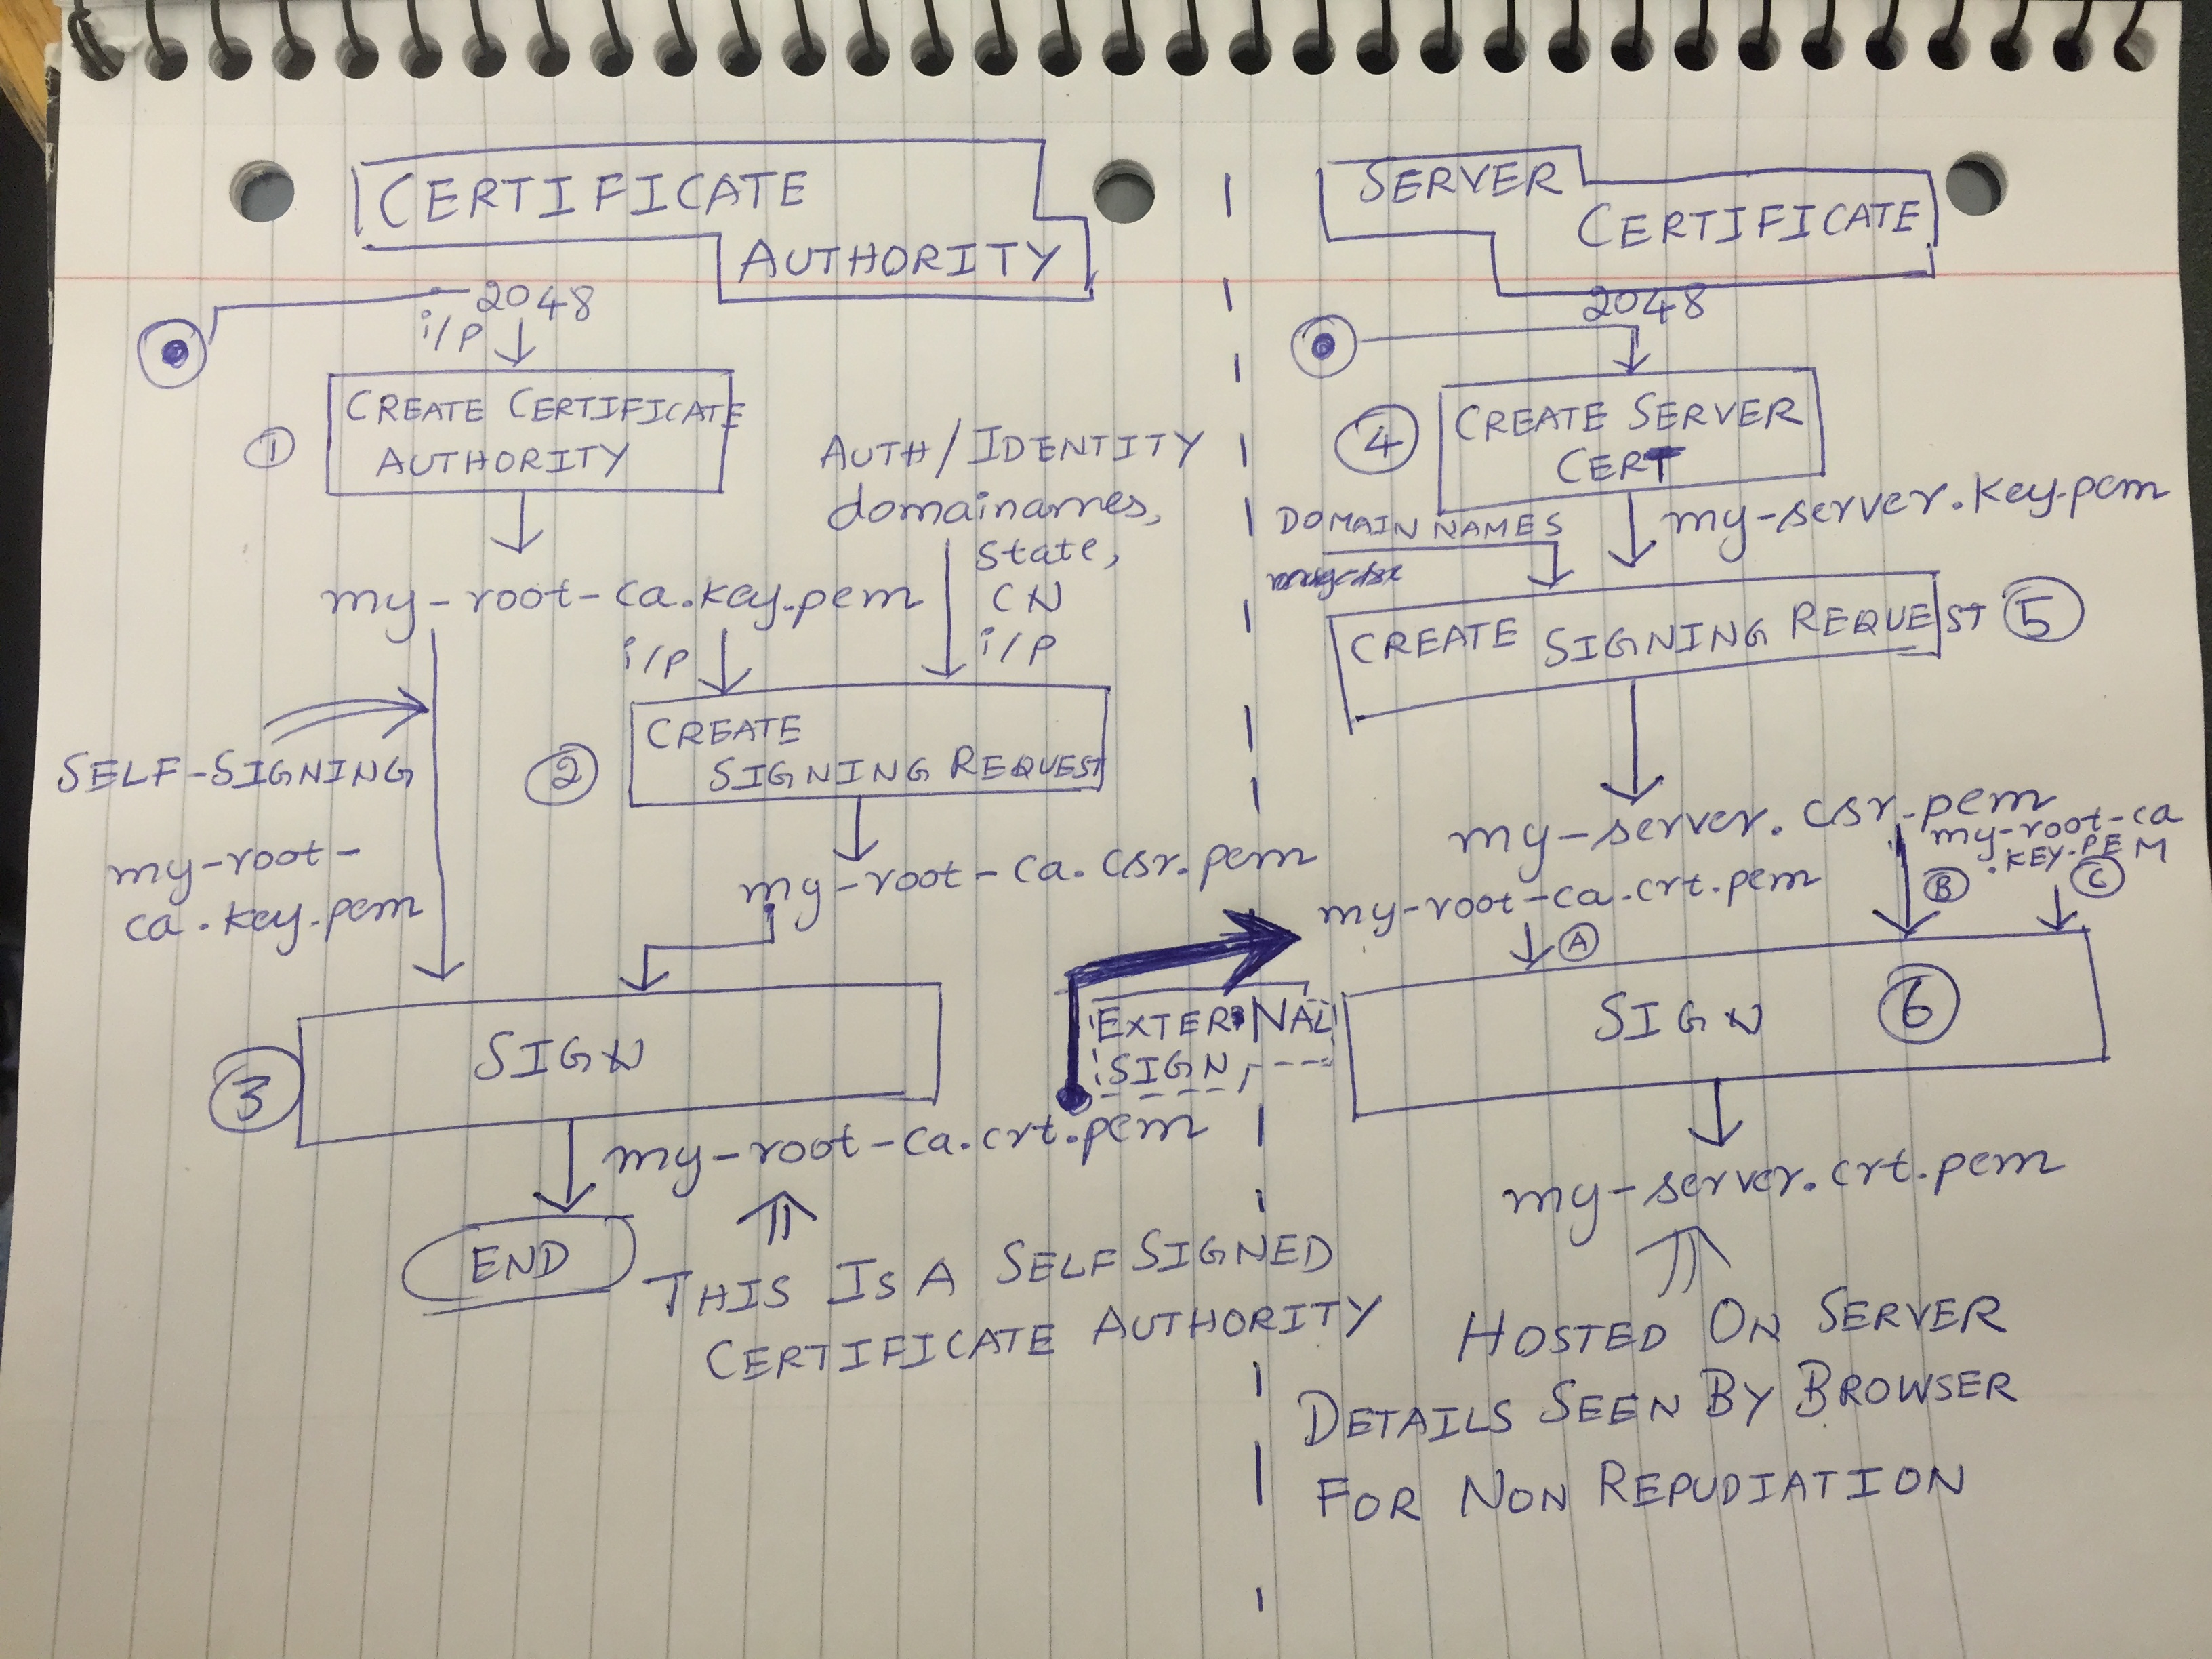 CERTIFICATE
AUTHORITY
2048
i/p
①
CREATE CERTIFICATE
AUTHORITY
AUTH/IDENTITY
domainames,
State,
CN
my-root-ca.key.pem
i/p
i/p
SELF-SIGNING
②
CREATE
SIGNING REQUEST
my-root-
ca.key.pem
my-root-ca.csr.pem
③
SIGN
EXTERNAL
SIGN
my-root-ca.crt.pem
END
THIS IS A SELF SIGNED
CERTIFICATE AUTHORITY
SERVER
CERTIFICATE
2048
④
CREATE SERVER
CERT
DOMAIN NAMES
my-server.key.pem
CREATE SIGNING REQUEST ⑤
my-server.csr.pem
my-root-ca
.KEY.PEM
my-root-ca.crt.pem
A
B
C
SIGN
⑥
my-server.crt.pem
HOSTED ON SERVER
DETAILS SEEN BY BROWSER
FOR NON REPUDIATION